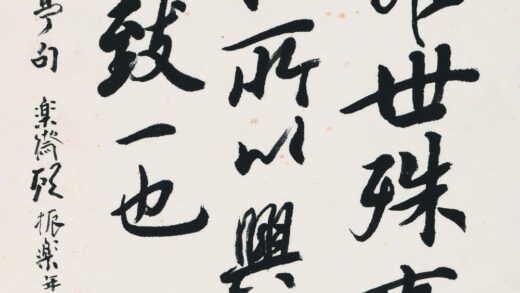 世殊
所以興
致一也
亭句 楽齋 振楽年